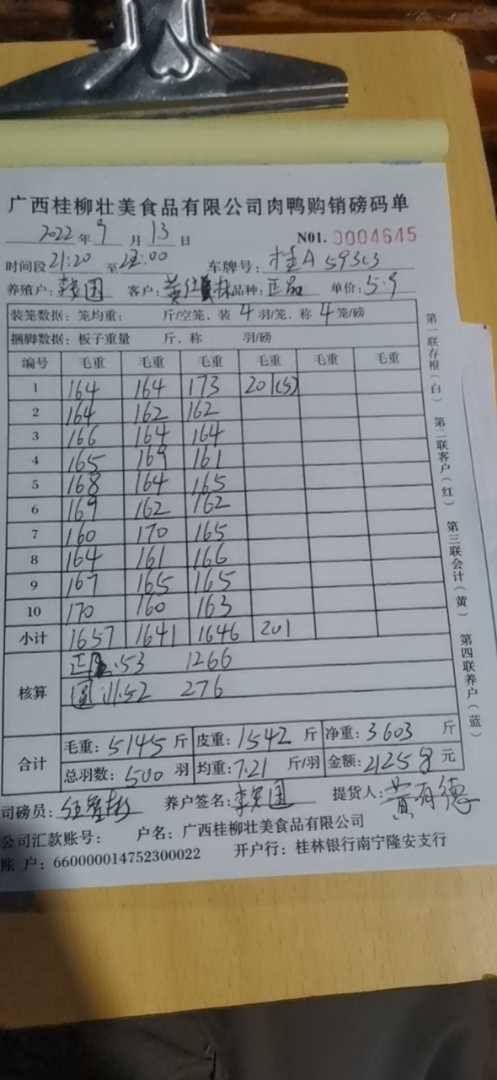 广西桂柳壮美食品有限公司肉鸭购销磅码单
2022 年 9 月 13 日 N01. 0004645
时间段 21:20 至 :00 车牌号: 桂A 593C3
养殖户: 国 客户: 黄 品种: 正品 单价: 5.9
装笼数据: 笼均重: 斤/空笼、装 4 羽/笼、称 4 笼/磅
捆脚数据: 板子重量 斤、称 羽/磅
编号 毛重 毛重 毛重 毛重 毛重 毛重
1 164 164 173 201(5)
2 164 162 162
3 166 164 164
4 165 169 161
5 168 164 165
6 169 162 162
7 160 170 165
8 164 161 166
9 167 165 165
10 170 160 163
小计 1657 1641 1646 201
核算
正 :53 1266
:52 276
合计
毛重: 5145 斤 皮重: 1542 斤 净重: 3603 斤
总羽数: 500 羽 均重: 7.21 斤/羽 金额: 21258 元
司磅员: 养户签名: 国 提货人: 黄有德
公司汇款账号: 户名: 广西桂柳壮美食品有限公司
账 户: 660000014752300022 开户行: 桂林银行南宁隆安支行
第一联存根(白)
第二联客户(红)
第三联会计(黄)
第四联养户(蓝)